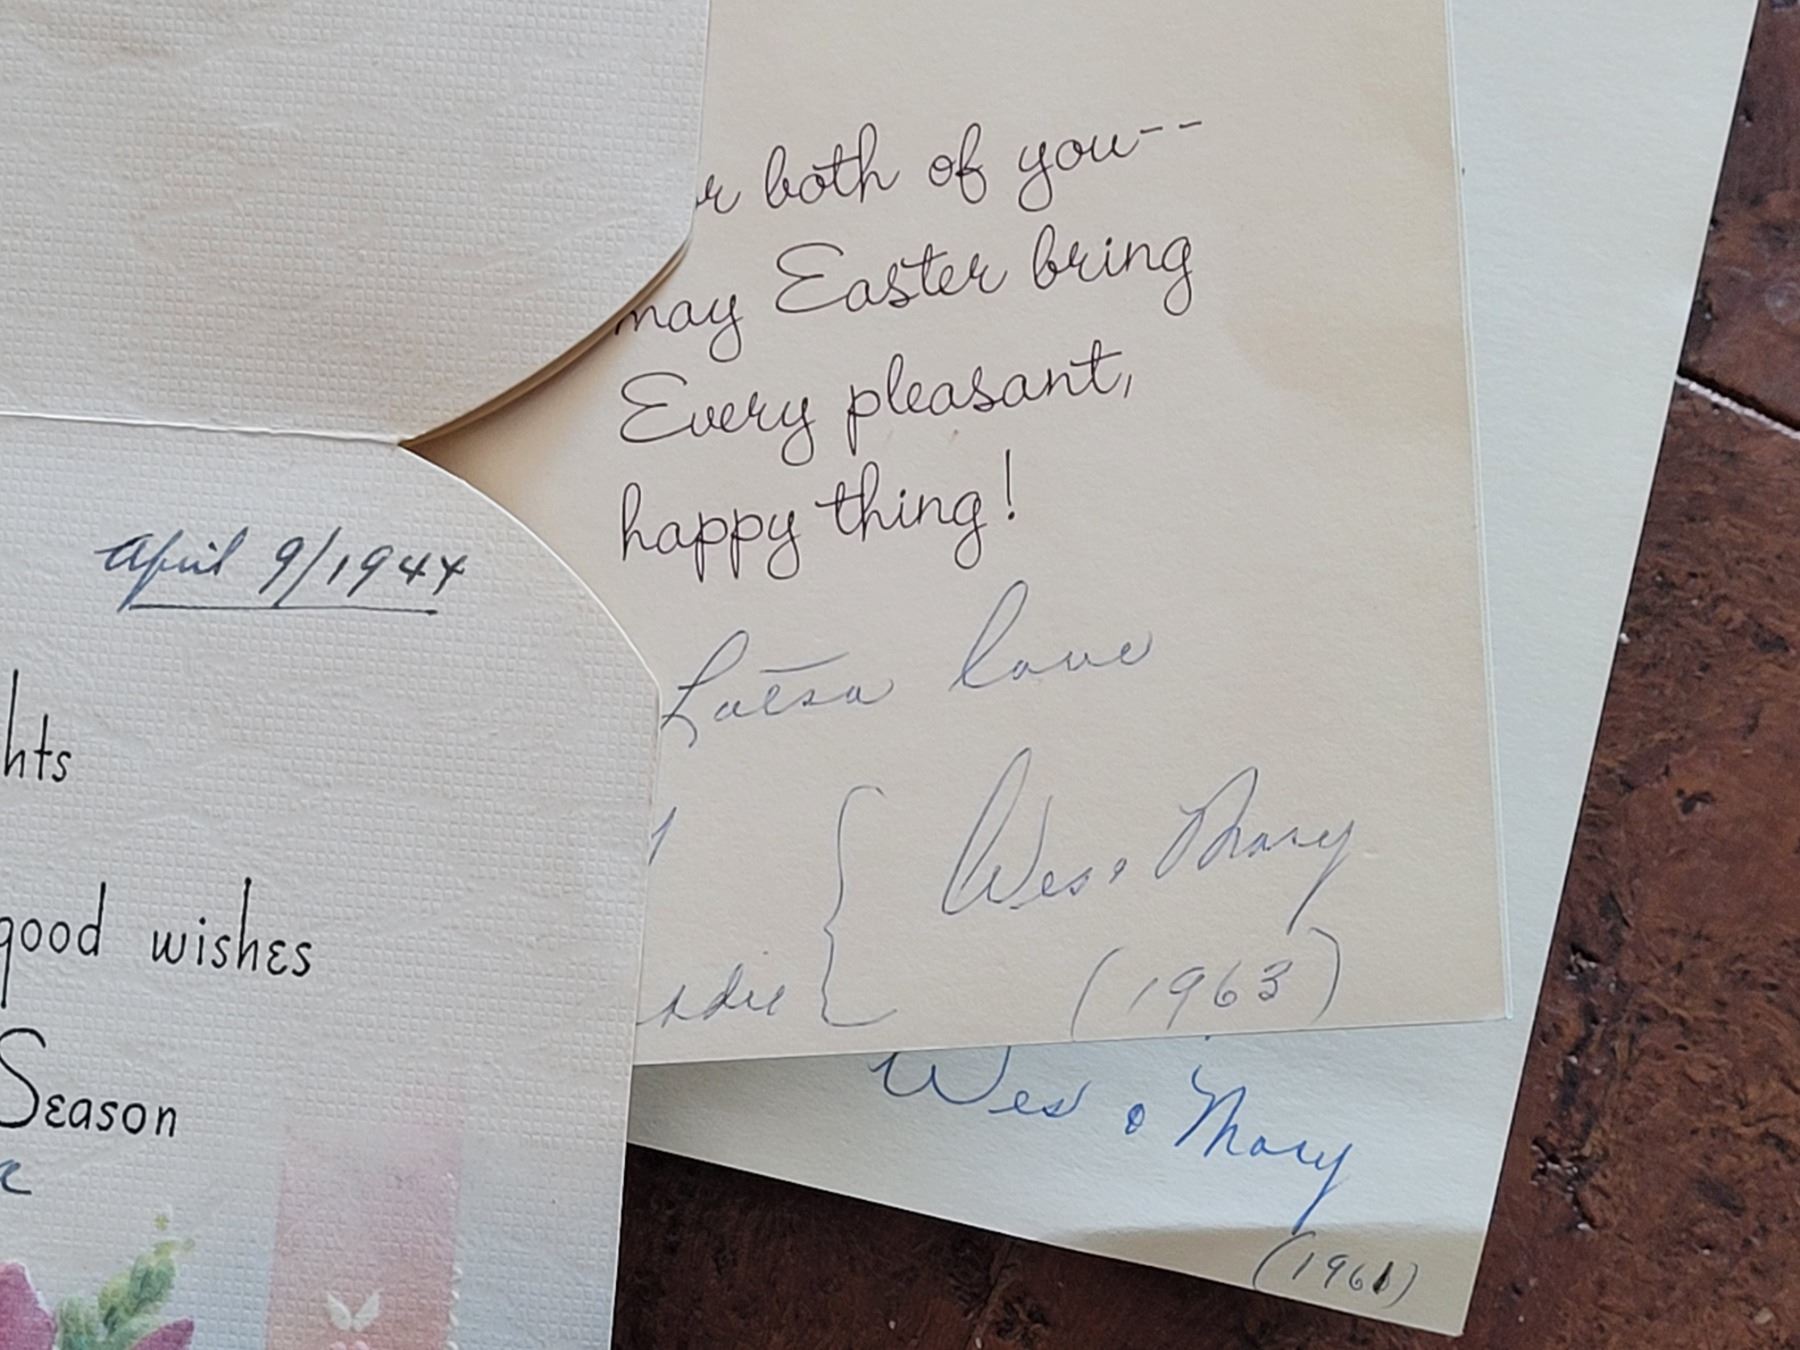 April 9/1944
hts
good wishes
Season
r both of you--
may Easter bring
Every pleasant,
happy thing!
Lotsa love
Wes & Mary
(1963)
Wes & Mary
(1961)